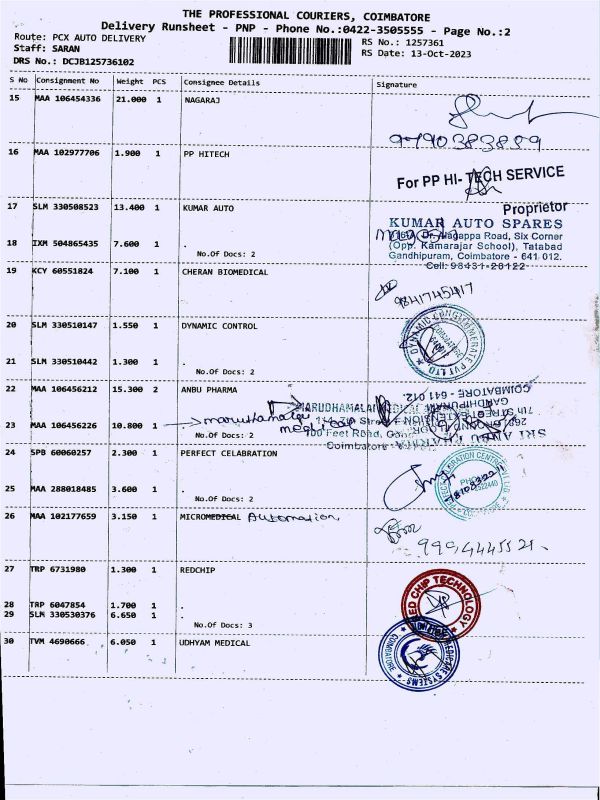 THE PROFESSIONAL COURIERS, COIMBATORE
Delivery Runsheet - PNP - Phone No.:0422-3505555 - Page No.:2
Route: PCX AUTO DELIVERY
RS No.: 1257361
Staff: SARAN
RS Date: 13-Oct-2023
DRS No.: DCJB125736102
S No Consignment No Weight PCS Consignee Details Signature
15 MAA 106454336 21.000 1 NAGARAJ
9790383889
16 MAA 102977706 1.900 1 PP HITECH
For PP HI-TECH SERVICE
Proprietor
17 SLM 330508523 13.400 1 KUMAR AUTO
KUMAR AUTO SPARES
Alagappa Road, Six Corner
18 IXM 504865435 7.600 1 .
(Opp. Kamarajar School), Tatabad
No.Of Docs: 2
Gandhipuram, Coimbatore - 641 012.
Cell: 98431-20122
19 KCY 60551824 7.100 1 CHERAN BIOMEDICAL
9841745417
20 SLM 330510147 1.550 1 DYNAMIC CONTROL
21 SLM 330510442 1.300 1 .
No.Of Docs: 2
22 MAA 106456212 15.300 2 ANBU PHARMA
COIMBATORE - 641 012.
23 MAA 106456226 10.800 1 marudhamalai medical
No.Of Docs: 2
100 Feet Road,
Coimbatore
24 SPB 60060257 2.300 1 PERFECT CELABRATION
25 MAA 288018485 3.600 1 .
No.Of Docs: 2
26 MAA 102177659 3.150 1 MICROMEDICAL Automation
9994445521
27 TRP 6731980 1.300 1 REDCHIP
RED CHIP TECHNOLOGY
28 TRP 6047854 1.700 1 .
29 SLM 330530376 6.650 1 .
No.Of Docs: 3
30 TVM 4690666 6.050 1 UDHYAM MEDICAL